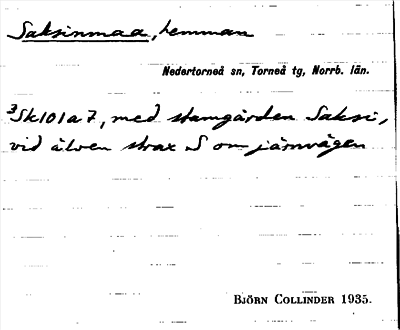 Saksinmaa, hemman
Nedertorneå sn, Torneå tg, Norrb. län.
3Sk101a7, med stamgården Saksi,
vid älven strax S om järnvägen
BJÖRN COLLINDER 1935.